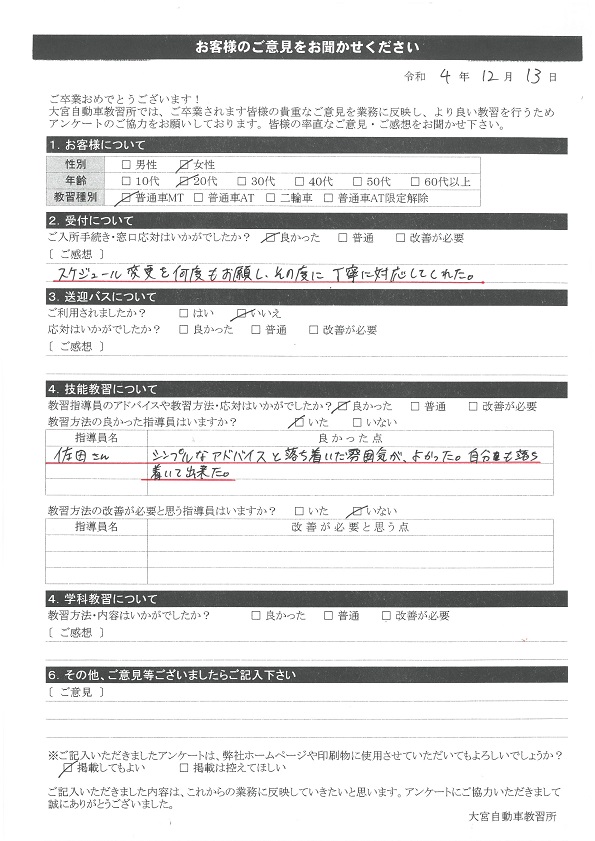 お客様のご意見をお聞かせください
令和 4 年 12 月 13 日
ご卒業おめでとうございます！
大宮自動車教習所では、ご卒業されます皆様の貴重なご意見を業務に反映し、より良い教習を行うため
アンケートのご協力をお願いしております。皆様の率直なご意見・ご感想をお聞かせ下さい。
1. お客様について
性別 □ 男性 ☑ 女性
年齢 □ 10代 ☑ 20代 □ 30代 □ 40代 □ 50代 □ 60代以上
教習種別 ☑ 普通車MT □ 普通車AT □ 二輪車 □ 普通車AT限定解除
2. 受付について
ご入所手続き・窓口応対はいかがでしたか？ ☑ 良かった □ 普通 □ 改善が必要
〔 ご感想 〕
スケジュール変更を何度もお願いし、その度に丁寧に対応してくれた。
3. 送迎バスについて
ご利用されましたか？ □ はい ☑ いいえ
応対はいかがでしたか？ □ 良かった □ 普通 □ 改善が必要
〔 ご感想 〕
4. 技能教習について
教習指導員のアドバイスや教習方法・応対はいかがでしたか？ ☑ 良かった □ 普通 □ 改善が必要
教習方法の良かった指導員はいますか？ ☑ いた □ いない
指導員名 良かった点
佐田さん シンプルなアドバイスと落ち着いた雰囲気が、よかった。自分も落ち
着いて出来た。
教習方法の改善が必要と思う指導員はいますか？ □ いた ☑ いない
指導員名 改善が必要と思う点
4. 学科教習について
教習方法・内容はいかがでしたか？ □ 良かった □ 普通 □ 改善が必要
〔 ご感想 〕
6. その他、ご意見等ございましたらご記入下さい
〔 ご意見 〕
※ご記入いただきましたアンケートは、弊社ホームページや印刷物に使用させていただいてもよろしいでしょうか？
☑ 掲載してもよい □ 掲載は控えてほしい
ご記入いただきました内容は、これからの業務に反映していきたいと思います。アンケートにご協力いただきまして
誠にありがとうございました。
大宮自動車教習所